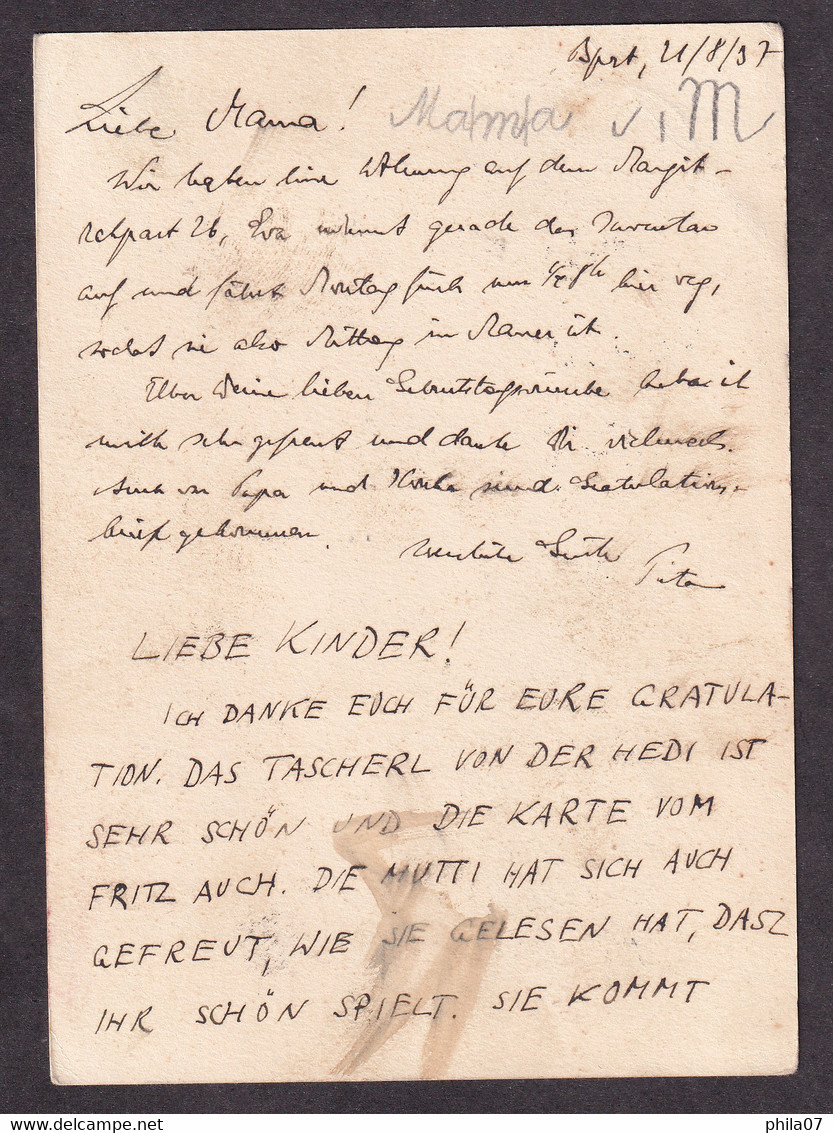 Bpest, 21/8/37
Liebe Mama! Mama v. M
Wir haben eine Wohnung auf dem Margit-
rakpart 26, Eva nimmt gerade das Inventar
auf und fährt Montag früh um 1/2 8h hier weg,
sodass sie also Mittag in ist.
Über Deine lieben Geburtstagswünsche habe ich
mich sehr gefreut und danke Dir vielmals.
Auch von Papa und sind Gratulations-
briefe gekommen.
Herzliche Grüße
LIEBE KINDER!
ICH DANKE EUCH FÜR EURE GRATULA-
TION. DAS TASCHERL VON DER HEDI IST
SEHR SCHÖN UND DIE KARTE VOM
FRITZ AUCH. DIE MUTTI HAT SICH AUCH
GEFREUT, WIE SIE GELESEN HAT, DASZ
IHR SCHÖN SPIELT. SIE KOMMT
delcampe.net
phila07